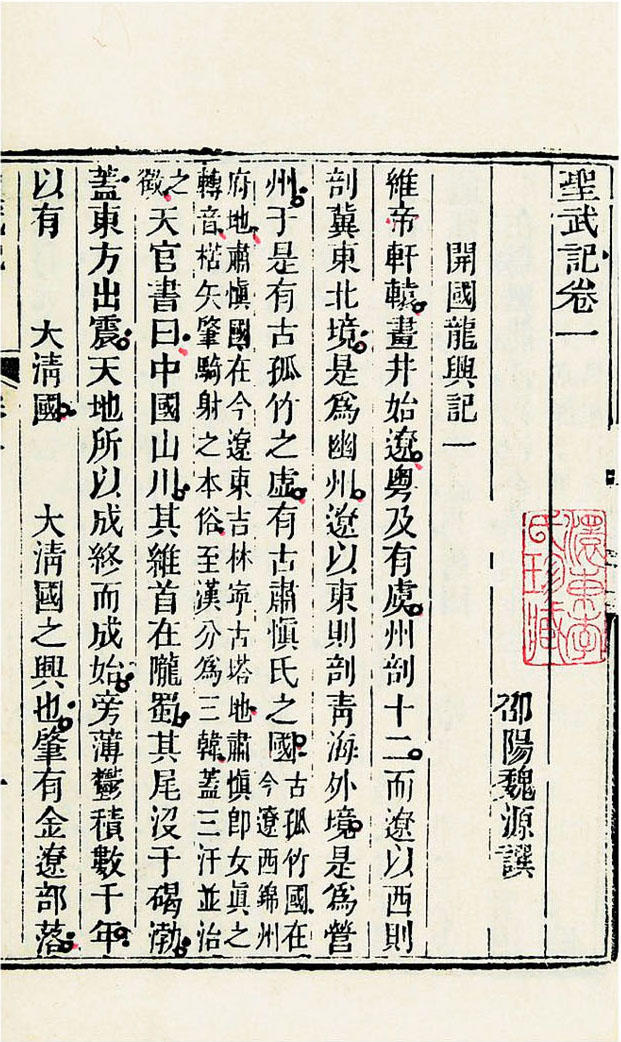 聖武記卷一
邵陽魏源譔
開國龍興記一
維帝軒轅畫井始遼粵及有虞州剖十二而遼以西則
剖冀東北境是爲幽州遼以東則剖青海外境是爲營
州于是有古孤竹之虛有古肅慎氏之國
古孤竹國在
今遼西錦州
府地肅慎國在今遼東吉林寧古塔地肅慎卽女眞之
轉音楛矢肇騎射之本俗至漢分爲三韓蓋三汗並治
之
徵
天官書曰中國山川其維首在隴蜀其尾沒于碣渤
蓋東方出震天地所以成終而成始旁薄鬱積數千年
以有 大清國 大清國之興也肇有金遼部落
東李
氏珍藏